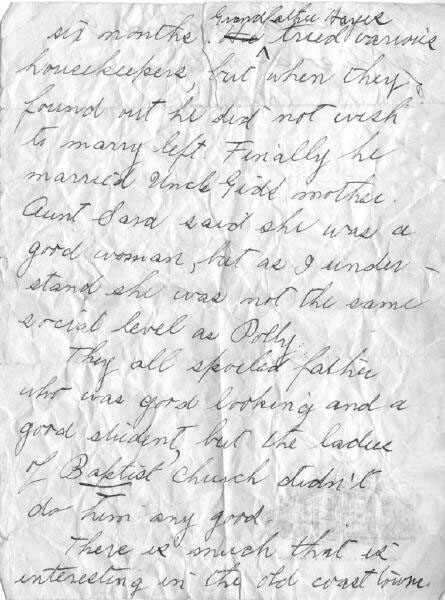 Grandfather Hayes
six months. He ^ tried various
housekeepers, but when they
found out he did not wish
to marry left. Finally he
married Uncle Gids mother.
Aunt Sara said she was a
good woman, but as I under-
stand she was not the same
social level as Polly.
They all spoiled father
who was good looking and a
good student, but the ladies
of Baptist church didn't
do him any good.
There is much that is
interesting in the old coast towns.